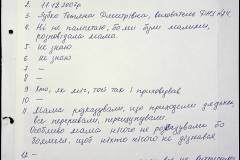 2. 11.12.2007р.
3. Зубко Тетяна Дмитрівна, вихователь ДНЗ №14.
4. Ні не пам'ятаю, бо ми були малими, розповідала мама.
5. Не знаю
6. Не знаю
7. —
8. —
9. Хто, як міг, той так і приховував
10. —
11. Мама розказували, що приходили
все перекивали, перешукували.
Особливо мама нікого не розказували бо
боялися, щоб ніхто нічого не дізнався
12. —